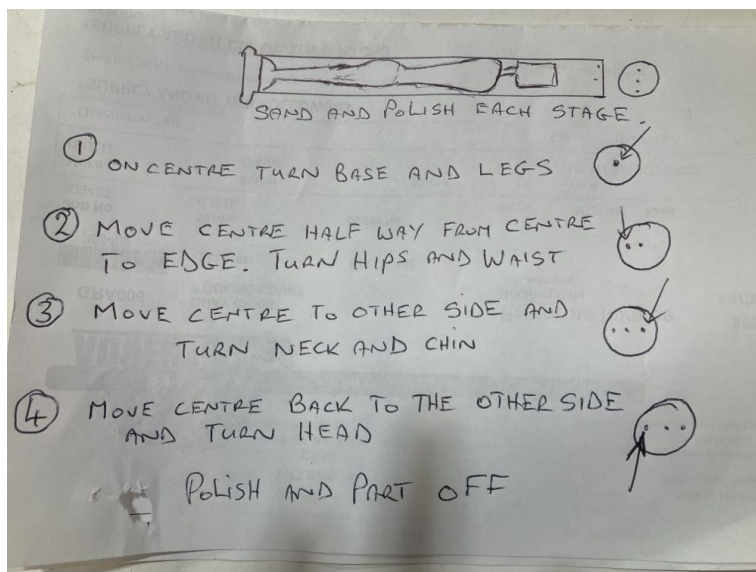 SAND AND POLISH EACH STAGE.
① ON CENTRE TURN BASE AND LEGS
② MOVE CENTRE HALF WAY FROM CENTRE
TO EDGE. TURN HIPS AND WAIST
③ MOVE CENTRE TO OTHER SIDE AND
TURN NECK AND CHIN
④ MOVE CENTRE BACK TO THE OTHER SIDE
AND TURN HEAD
POLISH AND PART OFF